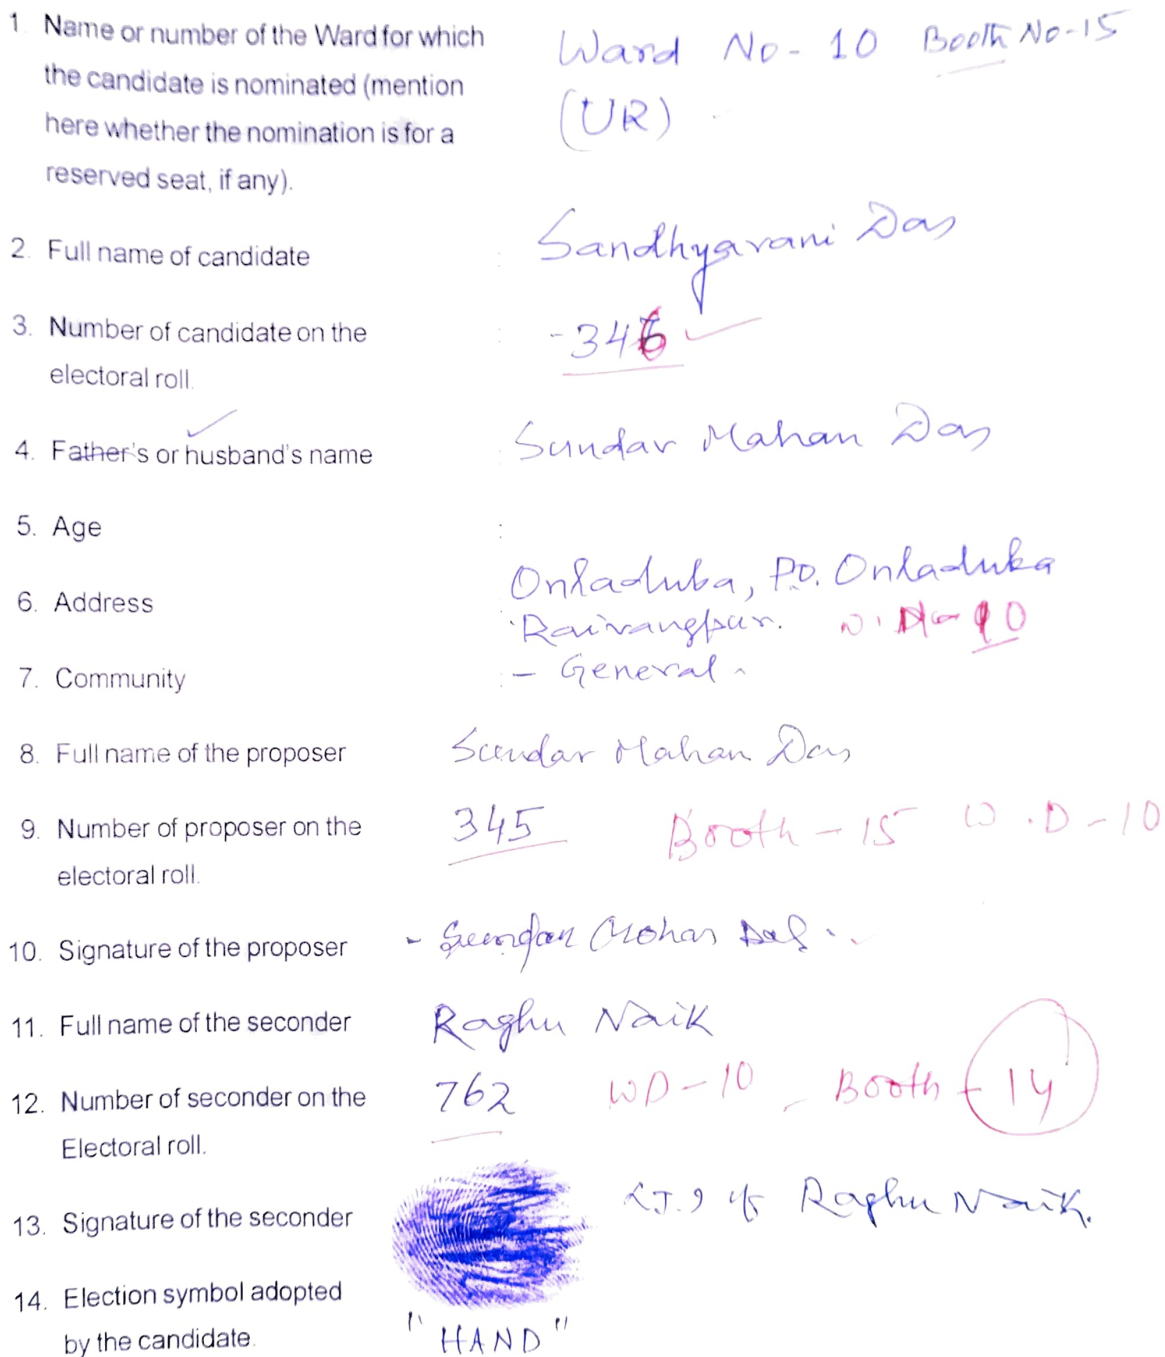 1. Name or number of the Ward for which Ward No - 10 Booth No-15
the candidate is nominated (mention (UR)
here whether the nomination is for a
reserved seat, if any).
2. Full name of candidate : Sandhyarani Das
3. Number of candidate on the : - 346
electoral roll.
4. Father's or husband's name : Sundar Mahan Das
5. Age :
Onladuba, PO. Onladuka
6. Address
Rairangpur. W. No-10
7. Community : - General
8. Full name of the proposer Sundar Mahan Das
9. Number of proposer on the 345 Booth - 15 W.D-10
electoral roll.
10. Signature of the proposer - Sundar Mohan Das
11. Full name of the seconder Raghu Naik
12. Number of seconder on the 762 WD-10 Booth - 14
Electoral roll.
13. Signature of the seconder L.T.I of Raghu Naik.
14. Election symbol adopted
by the candidate. "HAND"